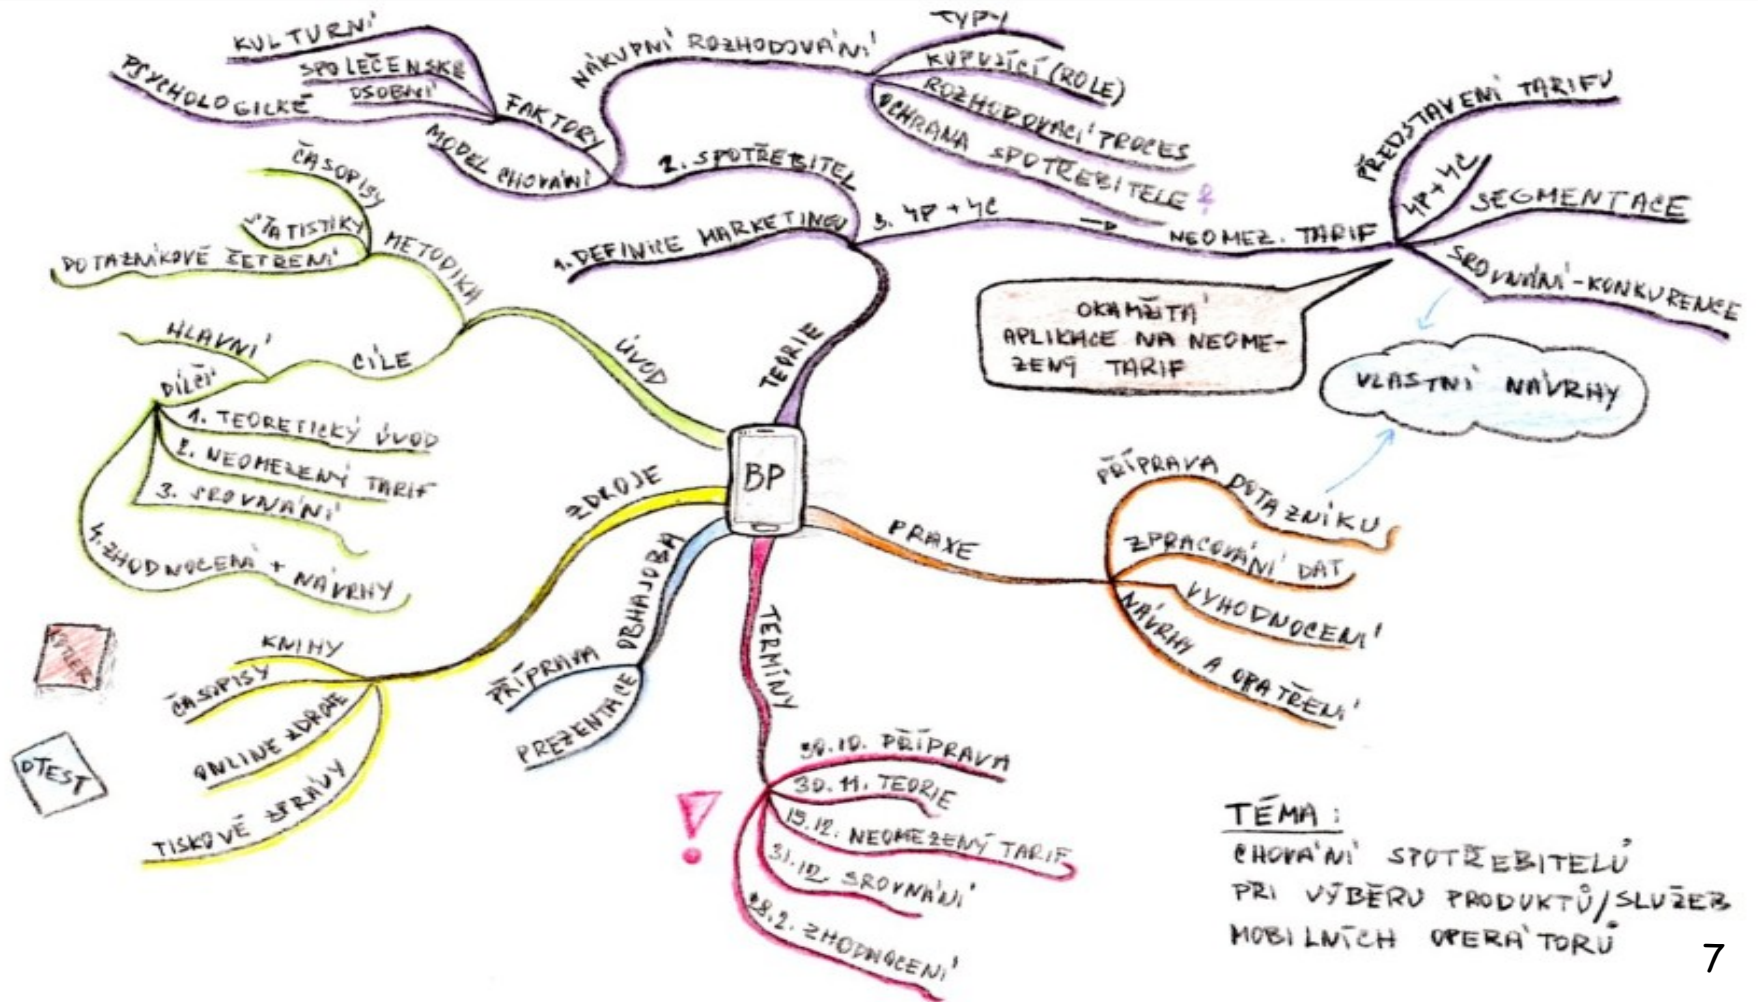 BP
TEORIE
1. DEFINICE MARKETINGU
2. SPOTŘEBITEL
FAKTORY
KULTURNÍ
SPOLEČENSKÉ
OSOBNÍ
PSYCHOLOGICKÉ
MODEL CHOVÁNÍ
NÁKUPNÍ ROZHODOVÁNÍ
TYPY
KUPUJÍCÍ (ROLE)
ROZHODOVACÍ PROCES
OCHRANA SPOTŘEBITELE ?
3. 4P + 4C →
NEOMEZ. TARIF
PŘEDSTAVENÍ TARIFU
4P + 4C
SEGMENTACE
SROVNÁNÍ - KONKURENCE
OKAMŽITÁ
APLIKACE NA NEOME-
ZENÝ TARIF
VLASTNÍ NÁVRHY
ÚVOD
METODIKA
ČASOPISY
STATISTIKY
DOTAZNÍKOVÉ ŠETŘENÍ
CÍLE
HLAVNÍ
DÍLČÍ
1. TEORETICKÝ ÚVOD
2. NEOMEZENÝ TARIF
3. SROVNÁNÍ
4. ZHODNOCENÍ + NÁVRHY
ZDROJE
KNIHY
ČASOPISY
ONLINE ZDROJE
TISKOVÉ ZPRÁVY
DTEST
OBHAJOBA
PŘÍPRAVA
PREZENTACE
TERMÍNY
!
30.10. PŘÍPRAVA
30.11. TEORIE
15.12. NEOMEZENÝ TARIF
31.12. SROVNÁNÍ
28.2. ZHODNOCENÍ
PRAXE
PŘÍPRAVA DOTAZNÍKU
ZPRACOVÁNÍ DAT
VYHODNOCENÍ
NÁVRHY A OPATŘENÍ
TÉMA :
CHOVÁNÍ SPOTŘEBITELŮ
PŘI VÝBĚRU PRODUKTŮ/SLUŽEB
MOBILNÍCH OPERÁTORŮ
7